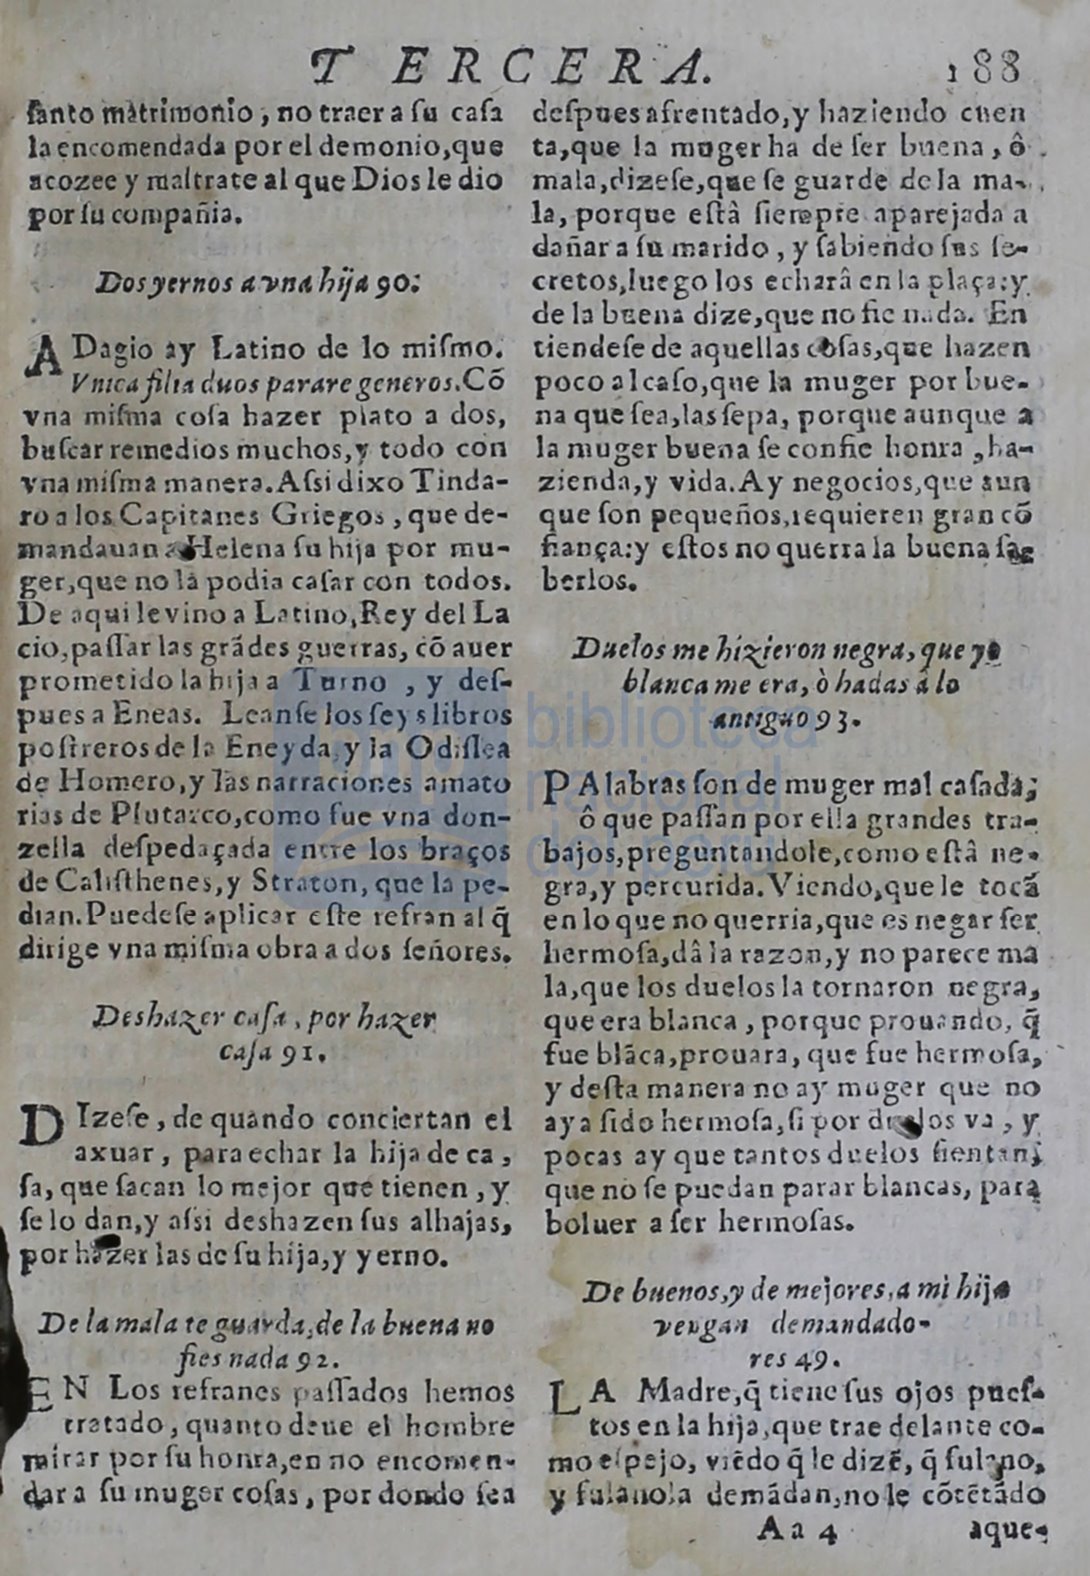 TERCERA. 188
ſanto matrimonio, no traer a ſu caſa
la encomendada por el demonio, que
acozee y maltrate al que Dios le dio
por ſu compañia.
Dos yernos a vna hija 90.
ADagio ay Latino de lo miſmo.
Vnica filia duos parare generos. Cõ
vna miſma coſa hazer plato a dos,
buſcar remedios muchos, y todo con
vna miſma manera. Aſsi dixo Tinda-
ro a los Capitanes Griegos, que de-
mandauan a Helena ſu hija por mu-
ger, que no la podia caſar con todos.
De aqui le vino a Latino, Rey del La
cio, paſſar las grãdes guerras, cõ auer
prometido la hija a Turno, y deſ-
pues a Eneas. Leanſe los ſeys libros
poſtreros de la Eneyda, y la Odiſſea
de Homero, y las narraciones amato
rias de Plutarco, como fue vna don-
zella deſpedaçada entre los braços
de Caliſthenes, y Straton, que la pe-
dian. Puedeſe aplicar eſte refran al q̃
dirige vna miſma obra a dos ſeñores.
Deshazer caſa, por hazer
caſa 91.
DIzeſe, de quando conciertan el
axuar, para echar la hija de ca,
ſa, que ſacan lo mejor que tienen, y
ſe lo dan, y aſsi deshazen ſus alhajas,
por hazer las de ſu hija, y yerno.
De la mala te guarda, de la buena no
fies nada 92.
EN Los refranes paſſados hemos
tratado, quanto deue el hombre
mirar por ſu honra, en no encomen-
dar a ſu muger coſas, por dondo ſea
deſpues afrentado, y haziendo cuen
ta, que la muger ha de ſer buena, ô
mala, dizeſe, que ſe guarde de la ma-
la, porque eſtâ ſiempre aparejada a
dañar a ſu marido, y ſabiendo ſus ſe-
cretos, luego los echarâ en la plaça: y
de la buena dize, que no fie nada. En
tiendeſe de aquellas coſas, que hazen
poco al caſo, que la muger por bue-
na que ſea, las ſepa, porque aunque a
la muger buena ſe confie honra, ha-
zienda, y vida. Ay negocios, que aun
que ſon pequeños, requieren gran cõ
fiança: y eſtos no querra la buena ſa-
berlos.
Duelos me hizieron negra, que yo
blanca me era, ò hadas á lo
antiguo 93.
PAlabras ſon de muger mal caſada;
ô que paſſan por ella grandes tra-
bajos, preguntandole, como eſtâ ne-
gra, y percurida. Viendo, que le tocã
en lo que no querria, que es negar ſer
hermoſa, dâ la razon, y no parece ma
la, que los duelos la tornaron negra,
que era blanca, porque prouando, q̃
fue blãca, prouara, que fue hermoſa,
y deſta manera no ay muger que no
aya ſido hermoſa, ſi por duelos va, y
pocas ay que tantos duelos ſientan;
que no ſe puedan parar blancas, para
boluer a ſer hermoſas.
De buenos, y de mejores, a mi hija
vengan demandado-
res 49.
LA Madre, q̃ tiene ſus ojos pueſ-
tos en la hija, que trae delante co-
mo eſpejo, viẽdo q̃ le dizẽ, q̃ fulano,
y fulano la demãdan, no le cõtẽtãdo
Aa 4 aque-
biblioteca
nacional
del perú